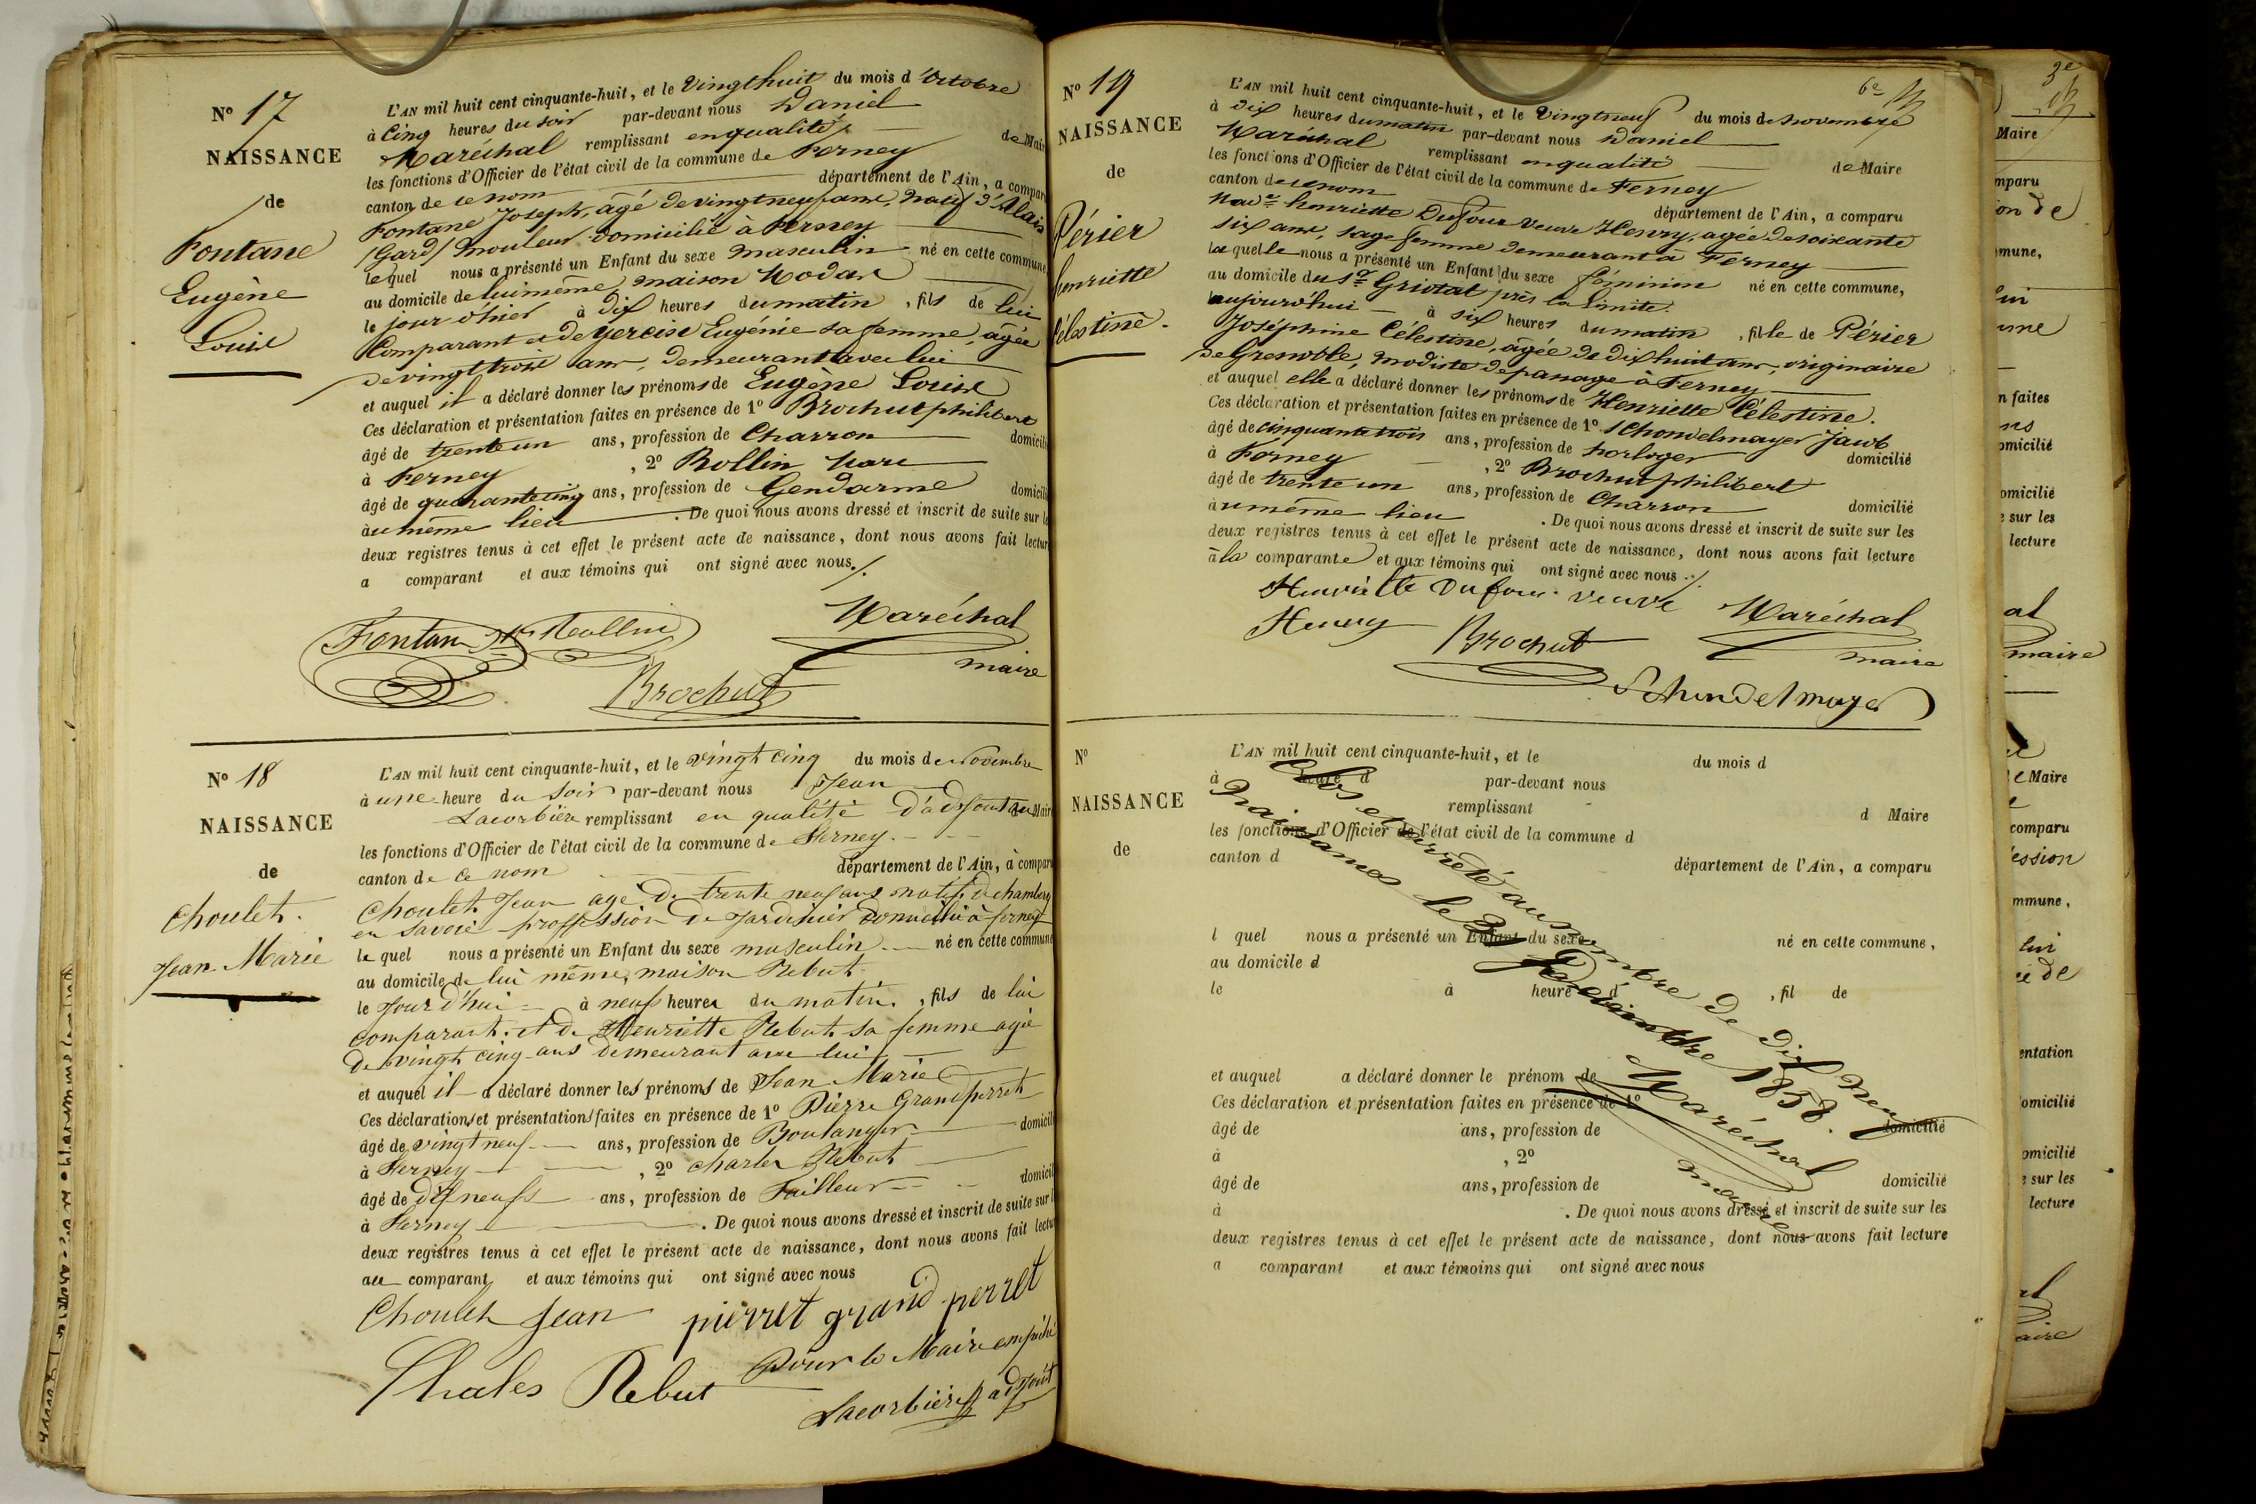 N° 17
NAISSANCE
de
Fontane
Eugène
Louis
L'AN mil huit cent cinquante-huit, et le Vingthuit du mois d'Octobre
à Cinq heures du soir par-devant nous Daniel
Maréchal remplissant en qualité de Maire
les fonctions d'Officier de l'état civil de la commune de Ferney
canton de ce nom département de l'Ain, a comparu
Fontane Joseph, âgé de vingtneuf ans, natif d'Alais
(Gard) mouleur domicilié à Ferney
le quel nous a présenté un Enfant du sexe masculin né en cette commune
au domicile de lui même, maison Modas
le jour d'hier à dix heures du matin, fils de lui
Comparant et de Eugénie sa femme, âgée
de vingttrois ans, demeurant avec lui
et auquel il a déclaré donner les prénoms de Eugène Louis
Ces déclaration et présentation faites en présence de 1° Brochut philibert
âgé de trente un ans, profession de Charron domicilié
à Ferney, 2° Rollin Marc
âgé de quarantecinq ans, profession de Gendarme domicilié
au même lieu. De quoi nous avons dressé et inscrit de suite sur le
deux registres tenus à cet effet le présent acte de naissance, dont nous avons fait lecture
a comparant et aux témoins qui ont signé avec nous./.
Fontan Rollin Maréchal
maire
Brochut
N° 18
NAISSANCE
de
Choulet.
Jean Marie
L'AN mil huit cent cinquante-huit, et le vingt cinq du mois de Novembre
à une heure du soir par-devant nous Jean
Lacorbière remplissant en qualité d'adjoint au Maire
les fonctions d'Officier de l'état civil de la commune de Ferney.
canton de ce nom département de l'Ain, à comparu
Choulet Jean âgé de trente neuf ans natif de chambery
en Savoie proffession de Jardinier domicilié à ferney
le quel nous a présenté un Enfant du sexe masculin né en cette commune
au domicile de lui même, maison Rebut
le Jour d'hui à neuf heures du matin, fils de lui
comparant. et de Henriette Rebut sa femme agée
de vingt cinq ans demeurant avec lui
et auquel il a déclaré donner les prénoms de Jean Marie
Ces déclarations et présentations faites en présence de 1° Pierre Grandperret
âgé de vingt neuf ans, profession de Boulanger domicilié
à Ferney, 2° charles Rebut
âgé de dix neufs ans, profession de Tailleur domicilié
à Ferney. De quoi nous avons dressé et inscrit de suite sur l
deux registres tenus à cet effet le présent acte de naissance, dont nous avons fait lecture
au comparant et aux témoins qui ont signé avec nous
Choulet Jean pierret grand perret
Pour le Maire empêché
Chales Rebut
Lacorbière adjoint
N° 19
NAISSANCE
de
Périer
henriette
Célestine.
L'AN mil huit cent cinquante-huit, et le Vingtneuf du mois de novembre
à dix heures du matin par-devant nous Daniel
Maréchal remplissant en qualité de Maire
les fonctions d'Officier de l'état civil de la commune de Ferney
canton de ce nom département de l'Ain, a comparu
Mad.e henriette Dufour veuve Henry, agée de soixante
six ans, sage femme demeurant à Ferney
la quelle nous a présenté un Enfant du sexe féminin né en cette commune,
au domicile du Sr Griotat près la Limite.
aujourd'hui à six heures du matin, fille de Périer
Joséphine Célestine, âgée de dix huit ans, originaire
de Grenoble, modiste de passage à Ferney
et auquel elle a déclaré donner les prénoms de Henriette Célestine.
Ces déclaration et présentation faites en présence de 1° Schondelmayer Jacob
âgé de cinquante trois ans, profession de horloger domicilié
à Ferney, 2° Brochut philibert
âgé de trente un ans, profession de Charron domicilié
au même lieu. De quoi nous avons dressé et inscrit de suite sur les
deux registres tenus à cet effet le présent acte de naissance, dont nous avons fait lecture
à la comparante et aux témoins qui ont signé avec nous ./.
Henriette Dufour veuve Maréchal
Henry Brochut maire
Schondelmayer
N°
NAISSANCE
de
L'AN mil huit cent cinquante-huit, et le du mois d
à heure d par-devant nous
remplissant d Maire
les fonctions d'Officier de l'état civil de la commune d
canton d département de l'Ain, a comparu
l quel nous a présenté un Enfant du sexe né en cette commune,
au domicile d
le à heure d, fil de
et auquel a déclaré donner le prénom de
Ces déclaration et présentation faites en présence de 1°
âgé de ans, profession de domicilié
à, 2°
âgé de ans, profession de domicilié
à. De quoi nous avons dressé et inscrit de suite sur les
deux registres tenus à cet effet le présent acte de naissance, dont nous avons fait lecture
a comparant et aux témoins qui ont signé avec nous
Clos et arrêté au nombre de dix neuf
naissances le 31 Décembre 1858.
Maréchal
maire
Maire
omicilié
sur les
lecture
maire